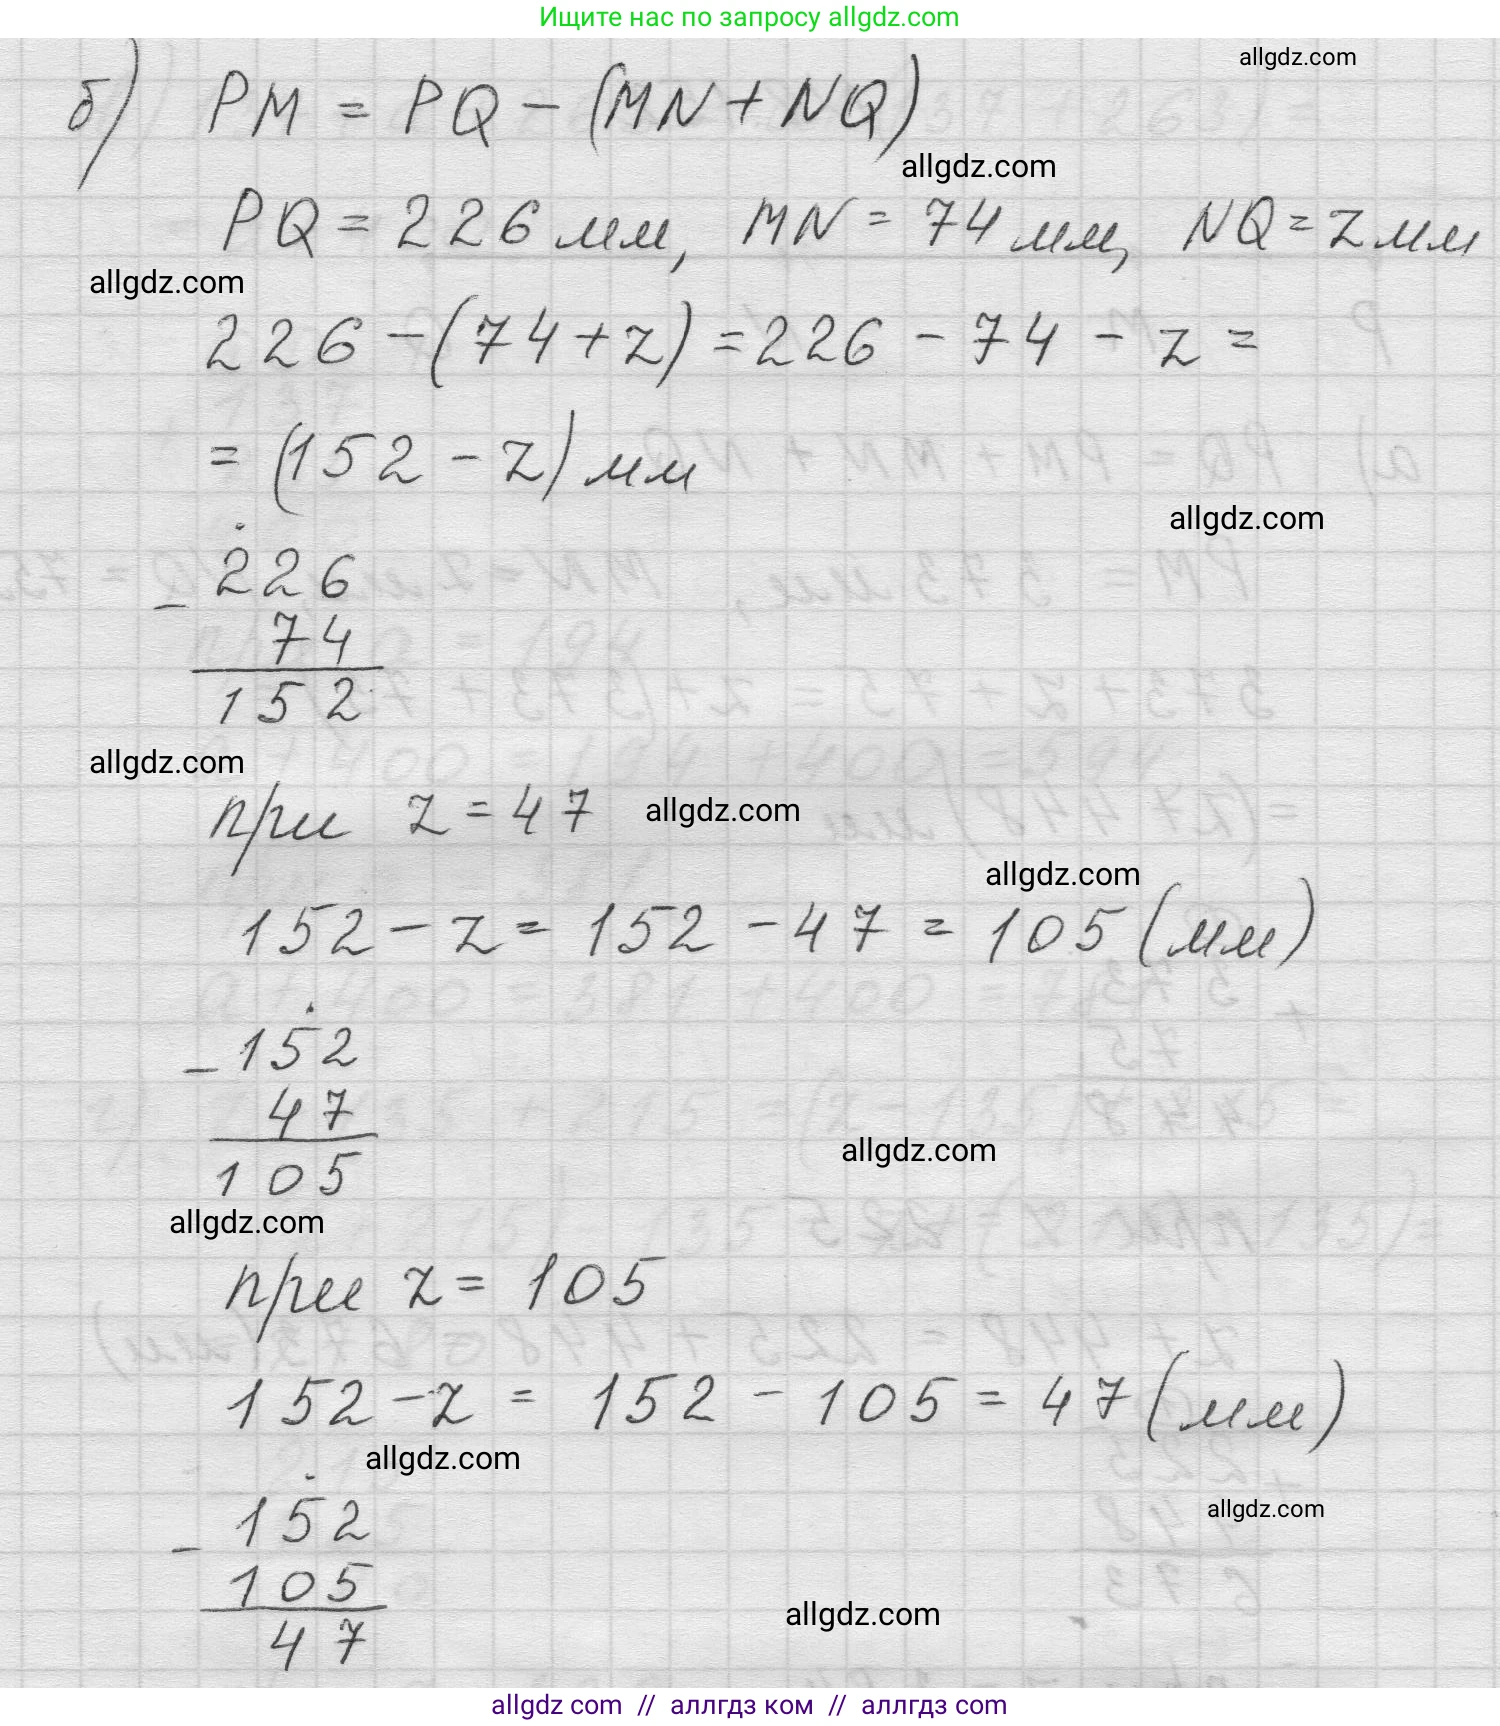 Ищите нас по запросу allgdz.com
allgdz.com
б) PM = PQ - (MN + NQ)
allgdz.com
PQ = 226 мм, MN = 74 мм, NQ = z мм
allgdz.com
226 - (74 + z) = 226 - 74 - z =
= (152 - z) мм
allgdz.com
226
-
74
152
allgdz.com
при z = 47
allgdz.com
allgdz.com
152 - z = 152 - 47 = 105 (мм)
152
-
47
105
allgdz.com
allgdz.com
при z = 105
152 - z = 152 - 105 = 47 (мм)
allgdz.com
152
-
105
47
allgdz.com
allgdz.com
allgdz com // аллгдз ком // аллгдз com